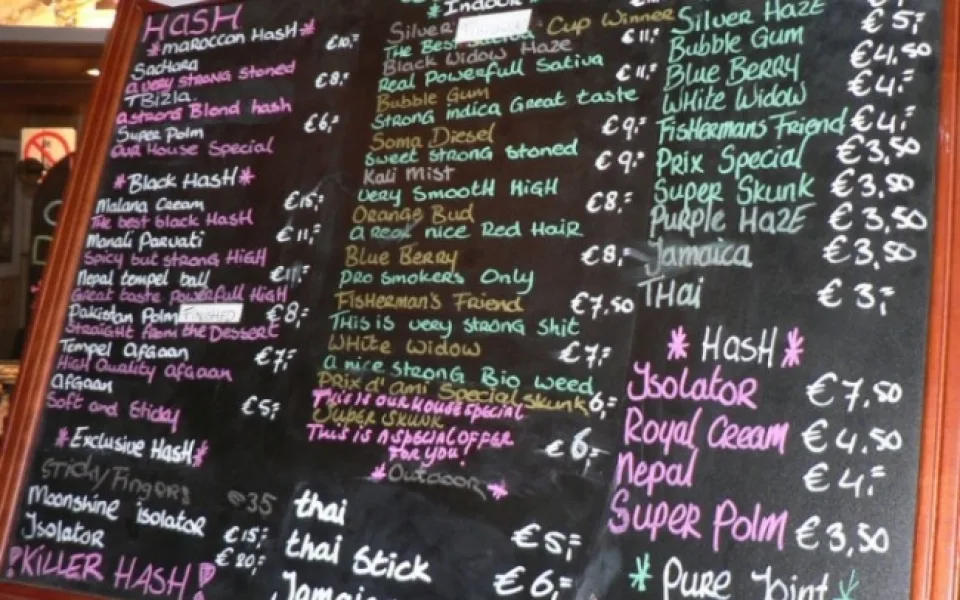 HasH
*Maroccan Hash*
Sachara €10,-
a very strong stoned
TBizla. €8,-
a strong Blond hash
Super Polm €6,-
Our House Special
*Black Hash*
Malana Cream €15,-
The best black Hash
Manali Parvati €11,-
Spicy but strong High
Nepal tempel ball €11,-
Great taste powerfull High
Pakistan Polm FINISHED €8,-
Straight from the Dessert
Tempel afgaan €7,-
High Quality afgaan
afgaan
Soft and Sticky €5,-
*Exclusive Hash*
Sticky Fingers €35
Moonshine isolator €15,-
Isolator €20,-
!KILLER HASH!
*Indoor
Silver Cup Winner
The Best €11,-
Black Widow Haze
Real Powerfull Sativa €11,-
Bubble Gum
Strong indica Great taste
Soma Diesel €9,-
Sweet strong stoned
Kali Mist €9,-
Very Smooth High
Orange Bud €8,-
a real nice Red Hair
Blue Berry €8,-
Pro smokers Only
Fisherman's Friend €7,50
This is very strong shit
White Widow €7,-
a nice strong Bio weed
Prix d'ami Special skunk 6,-
This is our house special
Super skunk
This is a special offer
for you! €6,-
*Outdoor*
thai €5,-
thai Stick €6,-
Jamaica
Silver Haze €5,-
Bubble Gum €4,50
Blue Berry €4,-
White Widow
Fishermans Friend €4,-
Prix Special €3,50
Super Skunk €3,50
Purple Haze €3,50
Jamaica €3,50
Thai €3,-
*Hash*
Isolator €7,50
Royal Cream €4,50
Nepal €4,-
Super Polm €3,50
*Pure Joint*